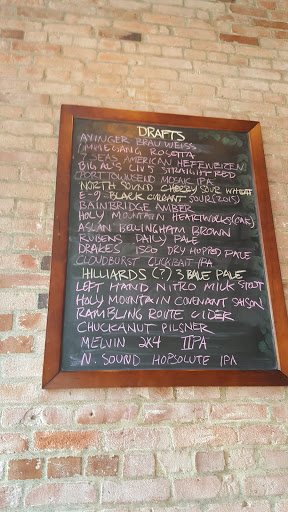 DRAFTS
AYINGER BRAU WEISS
OMMEGANG ROSETTA
7 SEAS AMERICAN HEFEWEIZEN
BIG AL'S STRAIGHT RED
PORT TOWNSEND MOSAIC IPA
NORTH SOUND CHERRY SOUR WHEAT
E-9 BLACK CURRANT SOUR (2015)
BAINBRIDGE AMBER
HOLY MOUNTAIN HEARTWORKS (OAK)
ASLAN BELLINGHAM BROWN
RUBENS DAILY PALE
DRAKES 1500 DRY HOPPED PALE
CLOUDBURST CLICKBAIT IPA
HILLIARDS (?) 3 BALE PALE
LEFT HAND NITRO MILK STOUT
HOLY MOUNTAIN COVENANT SAISON
RAMBLING ROUTE CIDER
CHUCKANUT PILSNER
MELVIN 2X4 IIPA
N. SOUND HOPSOLUTE IPA